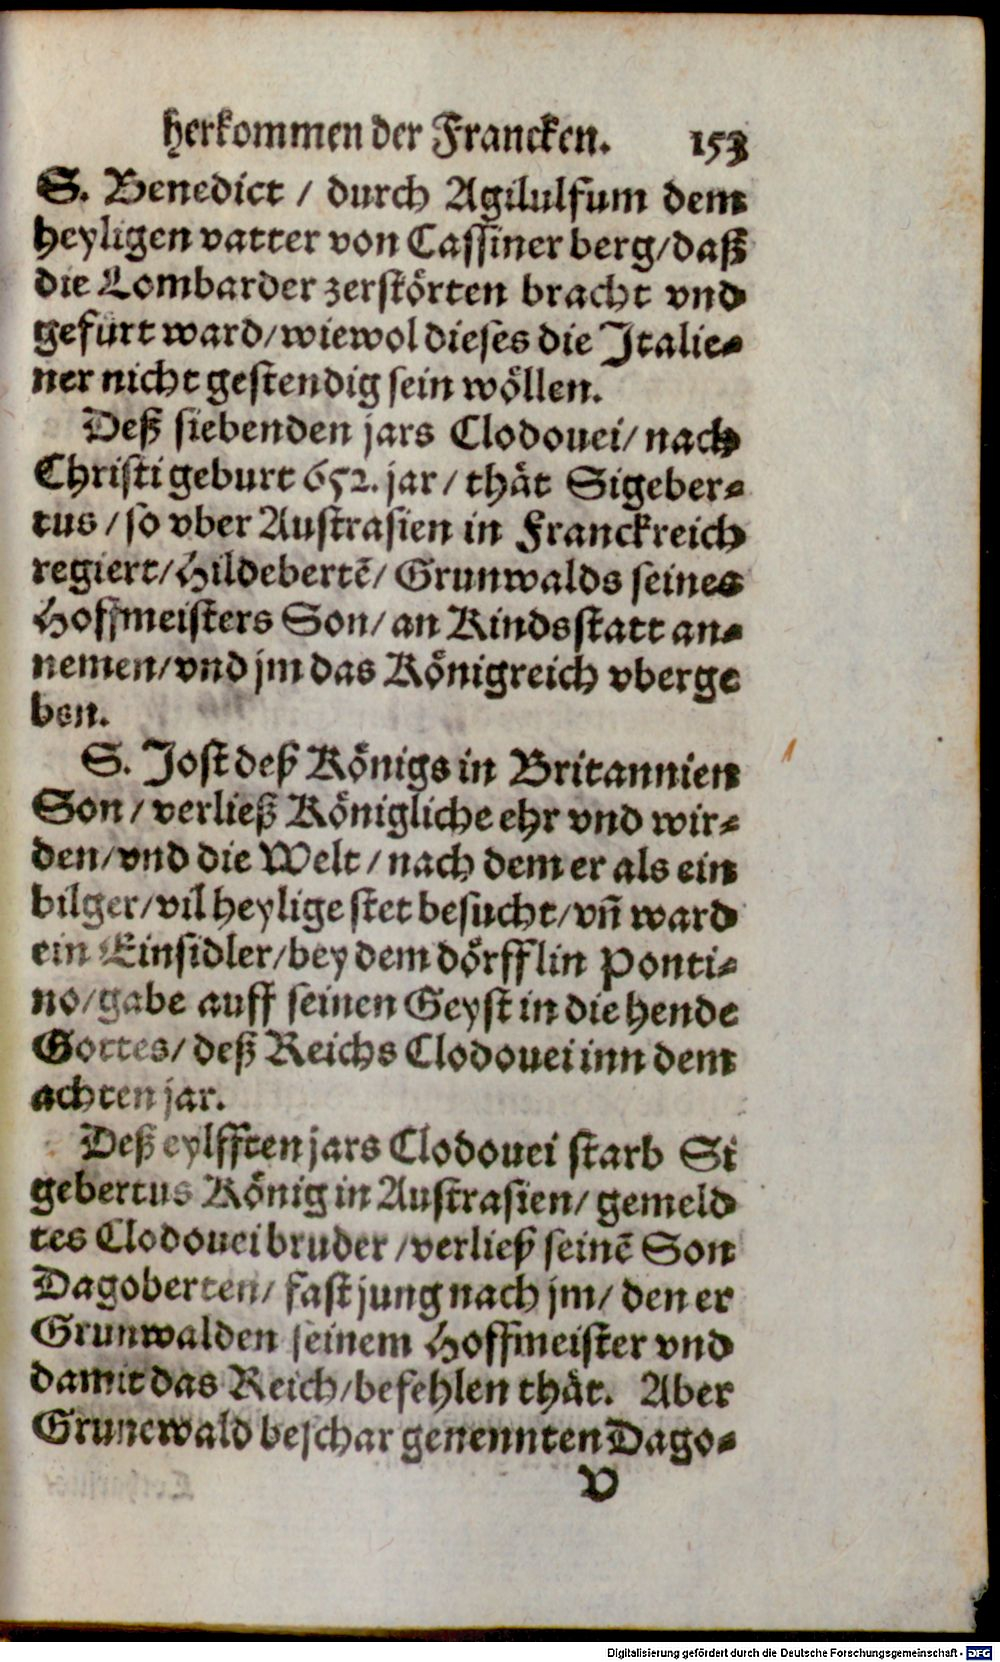 herkommen der Francken. 153
S. Benedict / durch Agilulfum dem
heyligen vatter von Cassiner berg/daß
die Lombarder zerstörten bracht vnd
gefürt ward/wiewol dieses die Italie-
ner nicht gestendig sein wöllen.
Deß siebenden jars Clodouei/ nach
Christi geburt 652. jar / thät Sigeber-
tus / so vber Austrasien in Franckreich
regiert/Hildebertē/ Grunwalds seines
Hoffmeisters Son/ an Kindsstatt an-
nemen/vnd jm das Königreich vberge
ben.
S. Jost deß Königs in Britannien
Son / verließ Königliche ehr vnd wir-
den/vnd die Welt / nach dem er als ein
bilger/vil heylige stet besucht/vñ ward
ein Einsidler/bey dem dörfflin Ponti-
no/gabe auff seinen Geyst in die hende
Gottes/ deß Reichs Clodouei inn dem
achten jar.
Deß eylfften jars Clodouei starb Si
gebertus König in Austrasien/ gemeld
tes Clodouei bruder /verließ seinē Son
Dagoberten/ fast jung nach jm/ den er
Grunwalden seinem Hoffmeister vnd
damit das Reich/befehlen thät. Aber
Grunewald beschar genennten Dago-
V
Digitalisierung gefördert durch die Deutsche Forschungsgemeinschaft - DFG